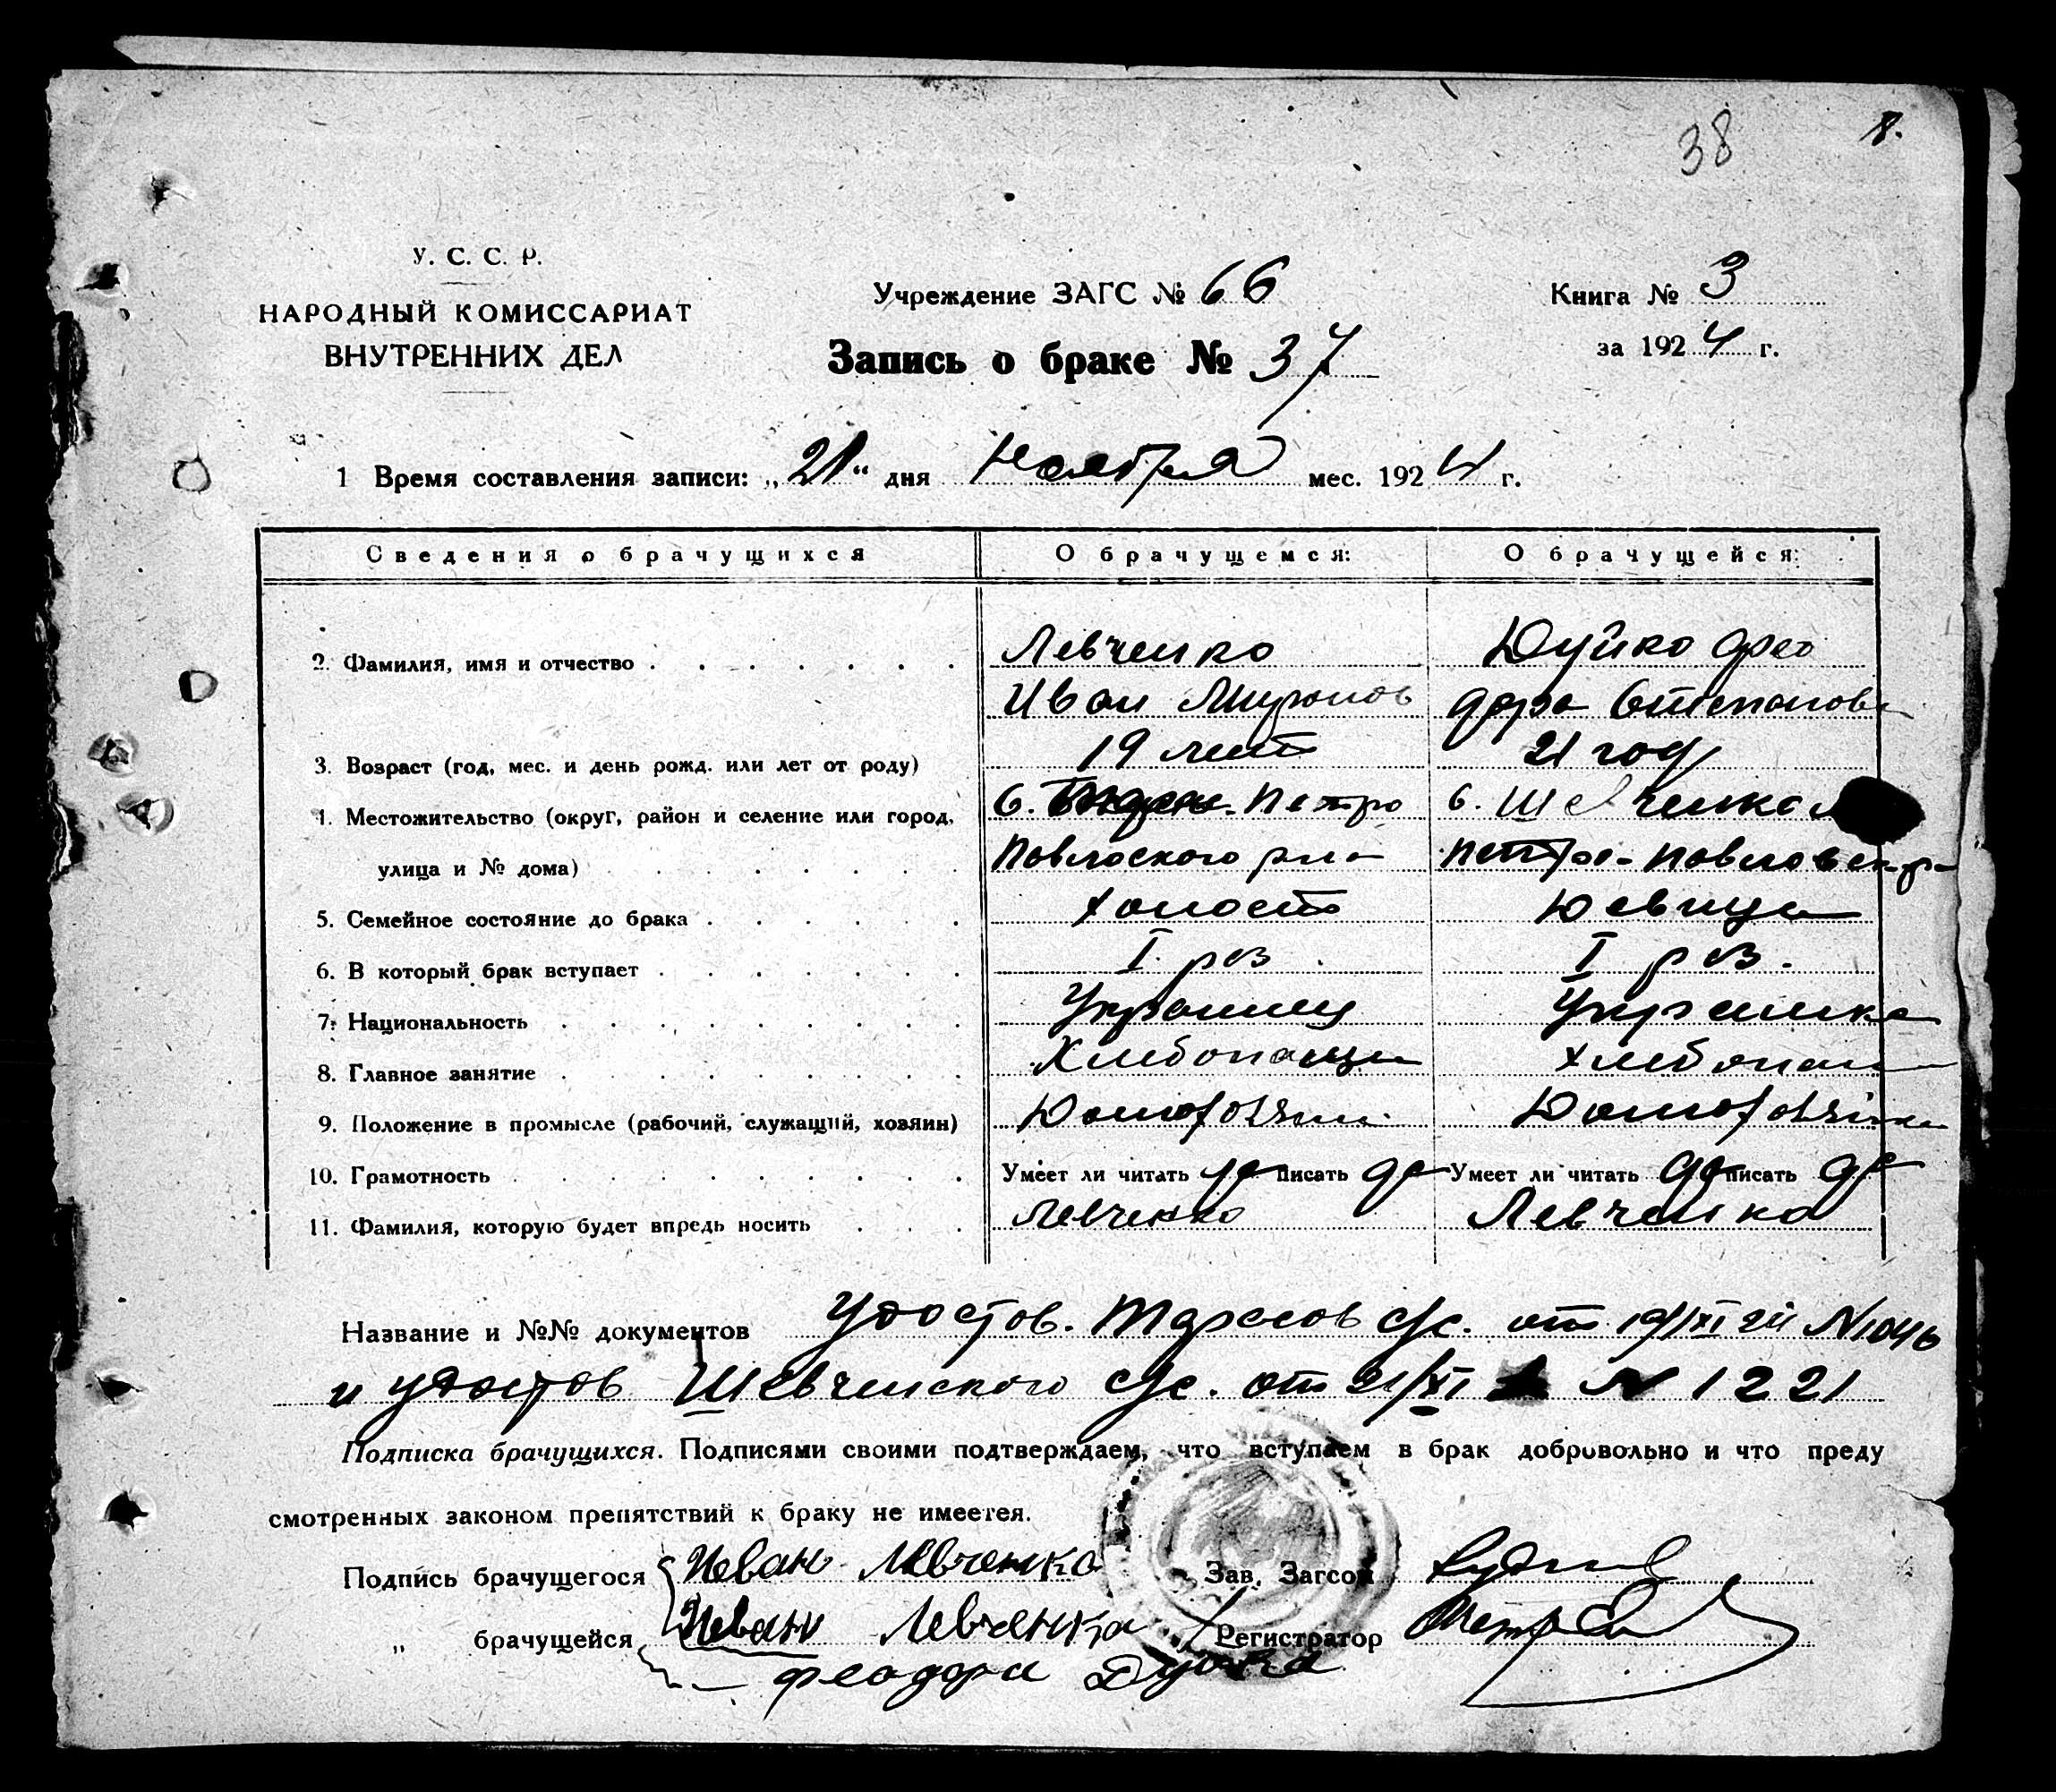 38
У. С. С. Р.
НАРОДНЫЙ КОМИССАРИАТ
ВНУТРЕННИХ ДЕЛ
Учреждение ЗАГС № 66
Книга № 3
Запись о браке № 37
за 1924 г.
1 Время составления записи: „21“ дня Ноября мес. 1924 г.
Сведения о брачущихся О брачущемся: О брачущейся:
2. Фамилия, имя и отчество Левченко Дуйко Фео
Иван Миронов дора Степанов
3. Возраст (год, мес. и день рожд. или лет от роду) 19 лет 21 год
4. Местожительство (округ, район и селение или город, с. Петро с. Шевченко
улица и № дома) Павлоского Петро-Павловск
5. Семейное состояние до брака Холост Девица
6. В который брак вступает I раз I раз.
7. Национальность Украинец Украинка
8. Главное занятие Хлебопашец Хлебопаш
9. Положение в промысле (рабочий, служащий, хозяин)
10. Грамотность Умеет ли читать да писать да Умеет ли читать да писать да
11. Фамилия, которую будет впредь носить Левченко Левченко
Название и №№ документов Удостов. Тарасов с/с. от 19/XI 24 N 1046
и удостов Шевченского с/с. от 21/XI N 1221
Подписка брачущихся. Подписями своими подтверждаем, что вступаем в брак добровольно и что преду
смотренных законом препятствий к браку не имеется.
Подпись брачущегося Иван Левченко Зав. Загсом
„ брачущейся Иван Левченко Регистратор
Феодора Дуйка